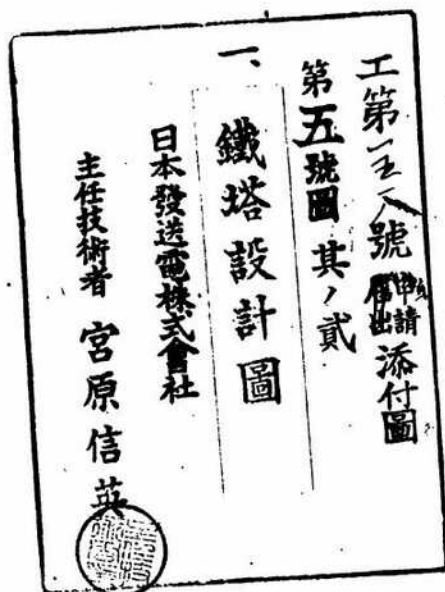 工第一五八號申請添付圖
第五號圖 其ノ貳
一、鐵塔設計圖
日本發送電株式會社
主任技術者 宮原信英